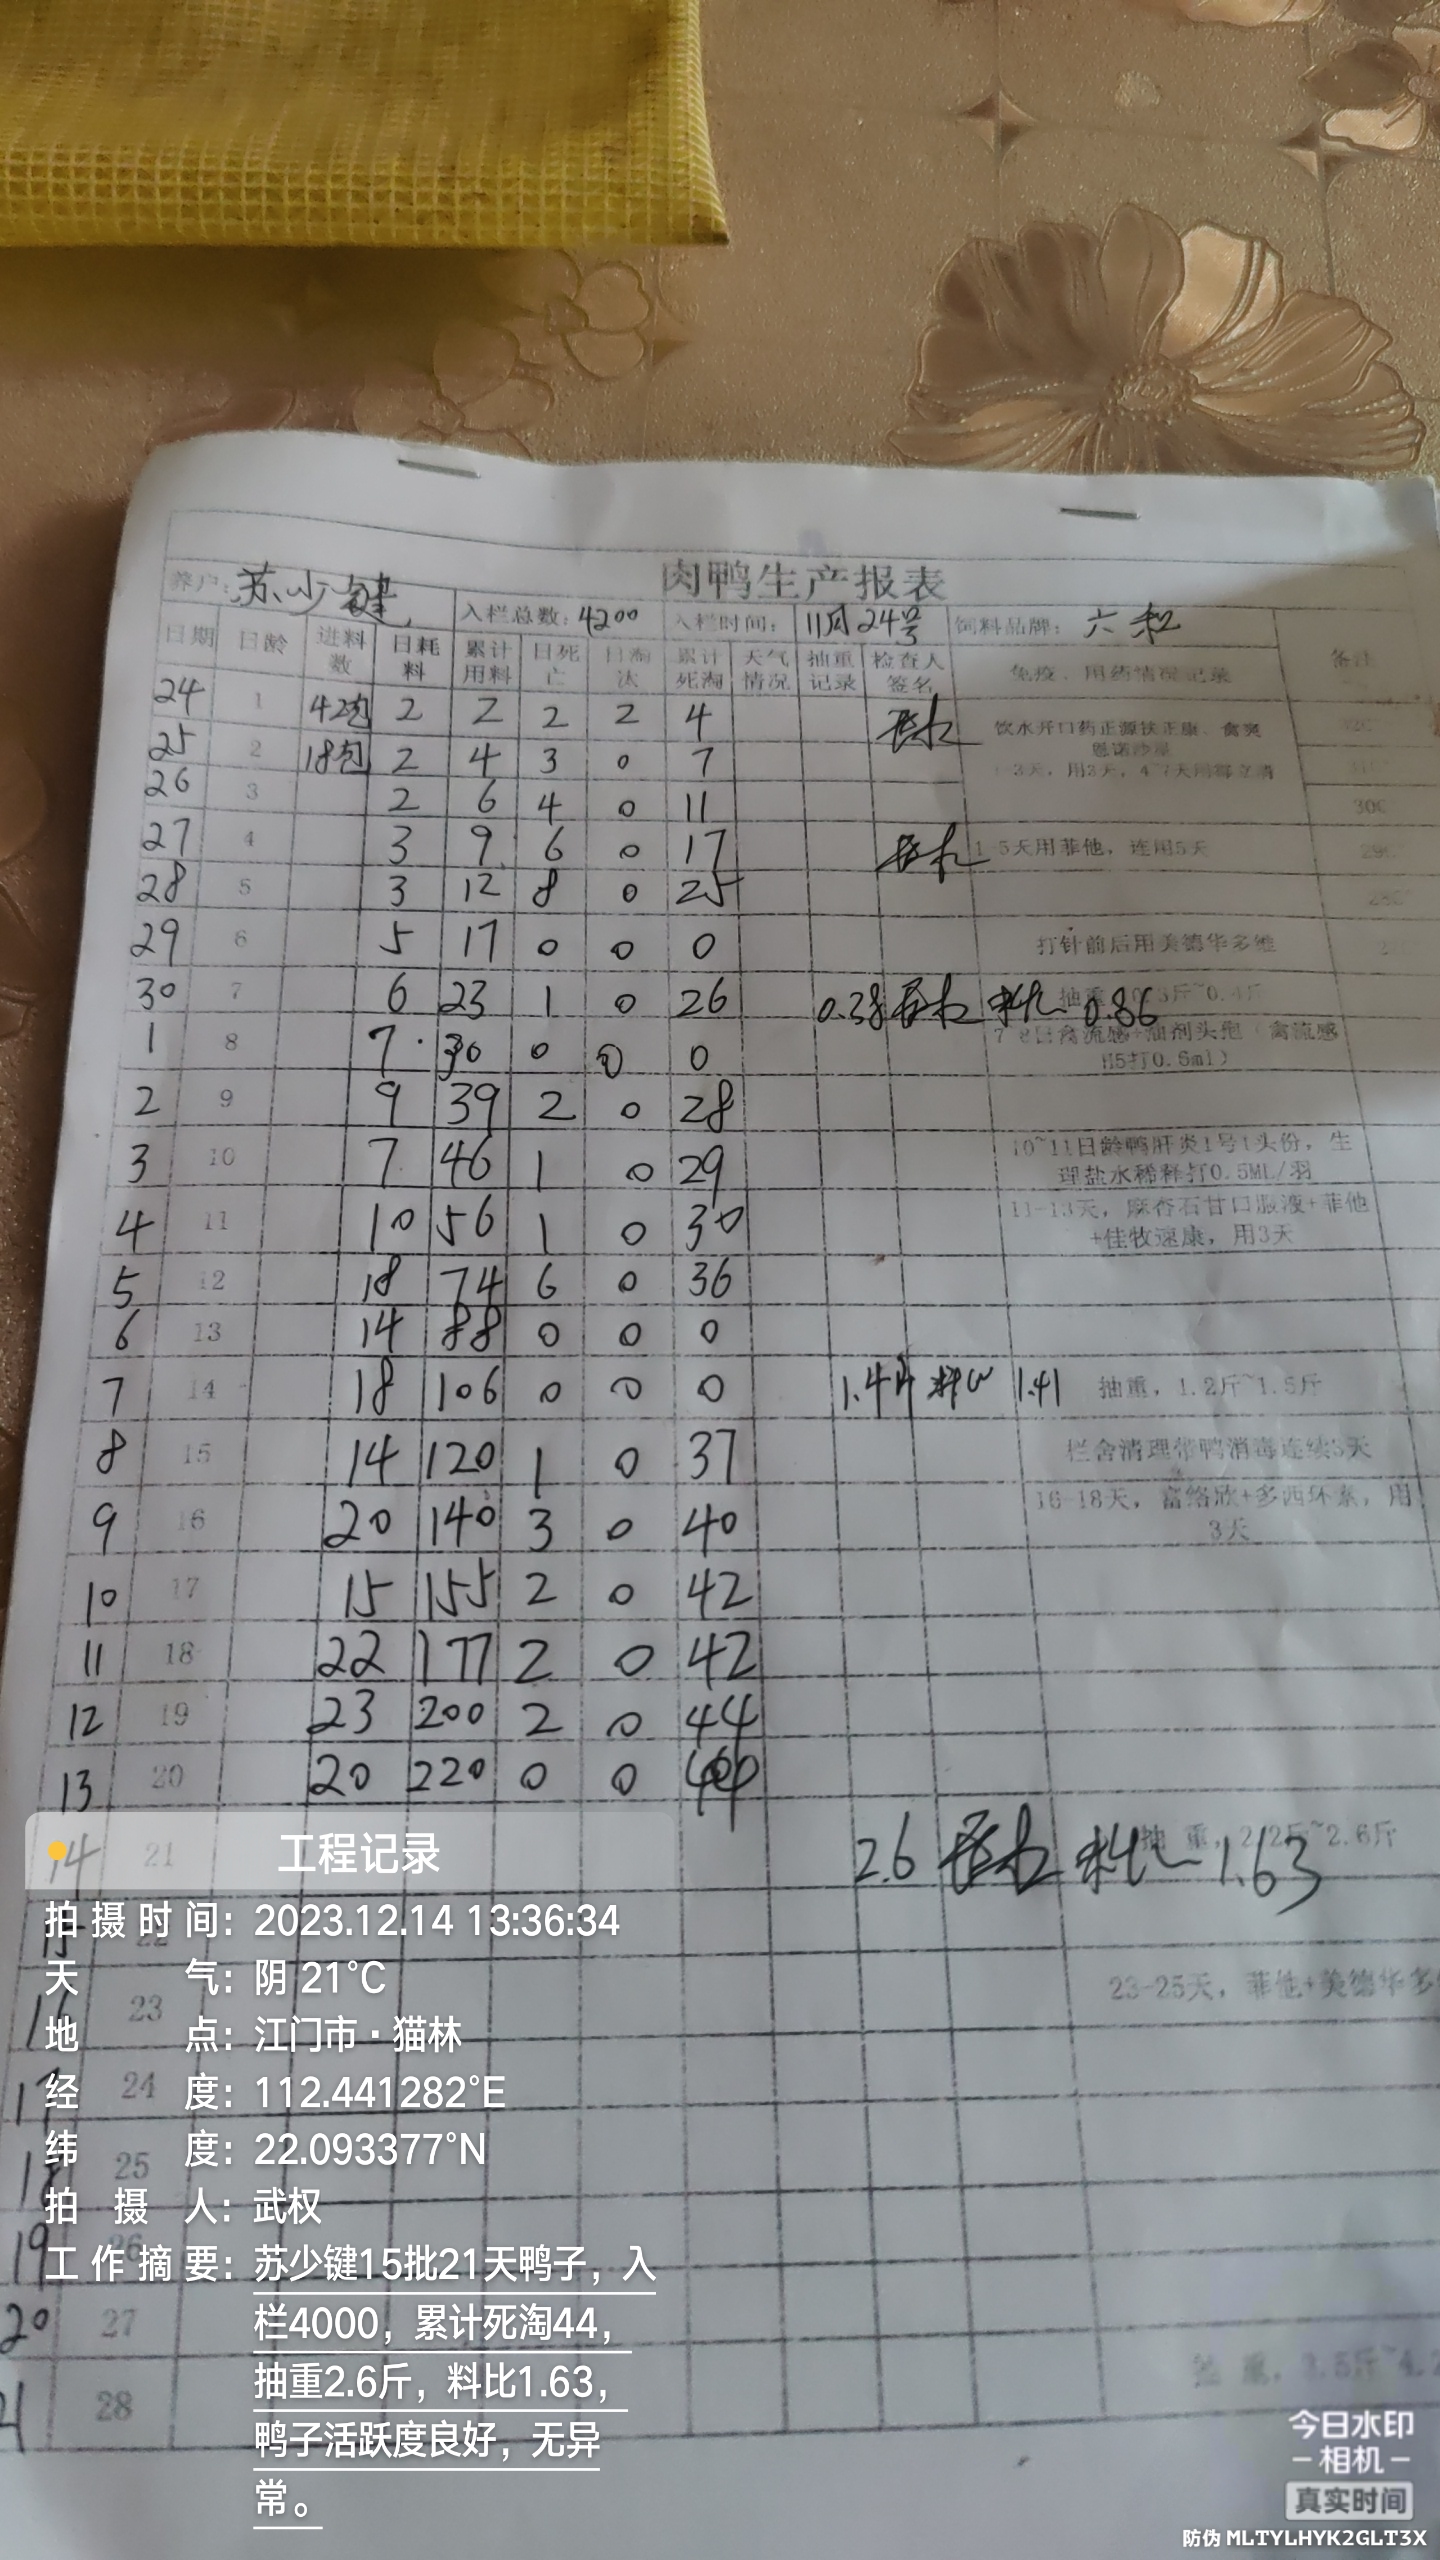 肉鸭生产报表
养户: 苏少键 入栏总数: 4200 入栏时间: 11月24号 饲料品牌: 六和
日期 日龄 进料数 日耗料 累计用料 日死亡 日淘汰 累计死淘 天气情况 抽重记录 检查人签名 免疫、用药情况记录 备注
24 1 42包 2 2 2 2 4 饮水开口药正源扶正康、禽爽
25 2 18包 2 4 3 0 7 1-3天，用3天，4~7天用
26 3 2 6 4 0 11 30C
27 4 3 9 6 0 17 1-5天用菲他，连用5天 29C
28 5 3 12 8 0 25 28C
29 6 5 17 0 0 0 打针前后用美德华多维
30 7 6 23 1 0 26 0.38 料比 0.86 抽重，0.3斤~0.4斤
1 8 7 30 0 0 0 7-8日禽流感+油剂头孢（禽流感H5打0.6ml）
2 9 9 39 2 0 28
3 10 7 46 1 0 29 10~11日龄鸭肝炎1号1头份，生理盐水稀释打0.5ML/羽
4 11 10 56 1 0 30 11-13天，麻杏石甘口服液+菲他+佳牧速康，用3天
5 12 18 74 6 0 36
6 13 14 88 0 0 0
7 14 18 106 0 0 0 1.4斤 料比 1.41 抽重，1.2斤~1.5斤
8 15 14 120 1 0 37 栏舍清理带鸭消毒连续3天
9 16 20 140 3 0 40 16-18天，富络欣+多西环素，用3天
10 17 15 155 2 0 42
11 18 22 177 2 0 42
12 19 23 200 2 0 44
13 20 20 220 0 0
14 21 2.6 料比 1.63 抽重，2.2斤~2.6斤
15 22
16 23 23-25天，菲他+美德华多
17 24
18 25
19 26
20 27
21 28
工程记录
拍摄时间: 2023.12.14 13:36:34
天气: 阴 21°C
地点: 江门市·猫林
经度: 112.441282°E
纬度: 22.093377°N
拍摄人: 武权
工作摘要: 苏少键15批21天鸭子，入
栏4000，累计死淘44，
抽重2.6斤，料比1.63，
鸭子活跃度良好，无异
常。
今日水印
-相机-
真实时间
防伪 MLTYLHYK2GLT3X